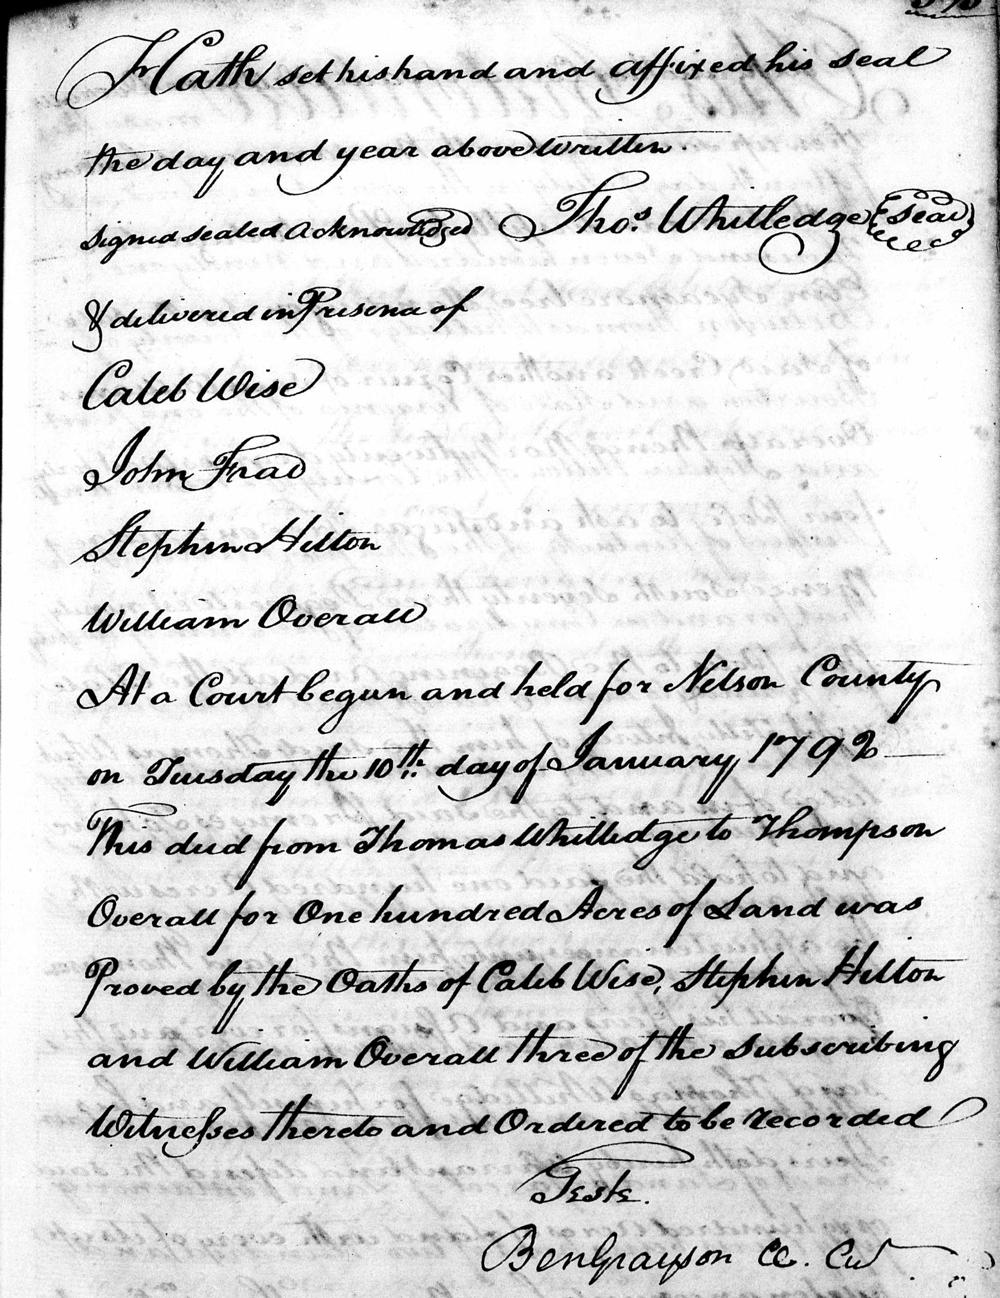 Hath set his hand and affixed his seal
the day and year above written.
Signed sealed Acknowledged Thos. Whitledge Seal
& delivered in Presence of
Caleb Wise
John
Stephen Hilton
William Overall
At a Court begun and held for Nelson County
on Tuesday the 10th. day of January 1792
This deed from Thomas Whitledge to Thompson
Overall for One hundred Acres of Land was
Proved by the Oaths of Caleb Wise, Stephen Hilton
and William Overall three of the Subscribing
Witnesses thereto and Ordered to be recorded
Teste.
Ben Grayson CC. Cur